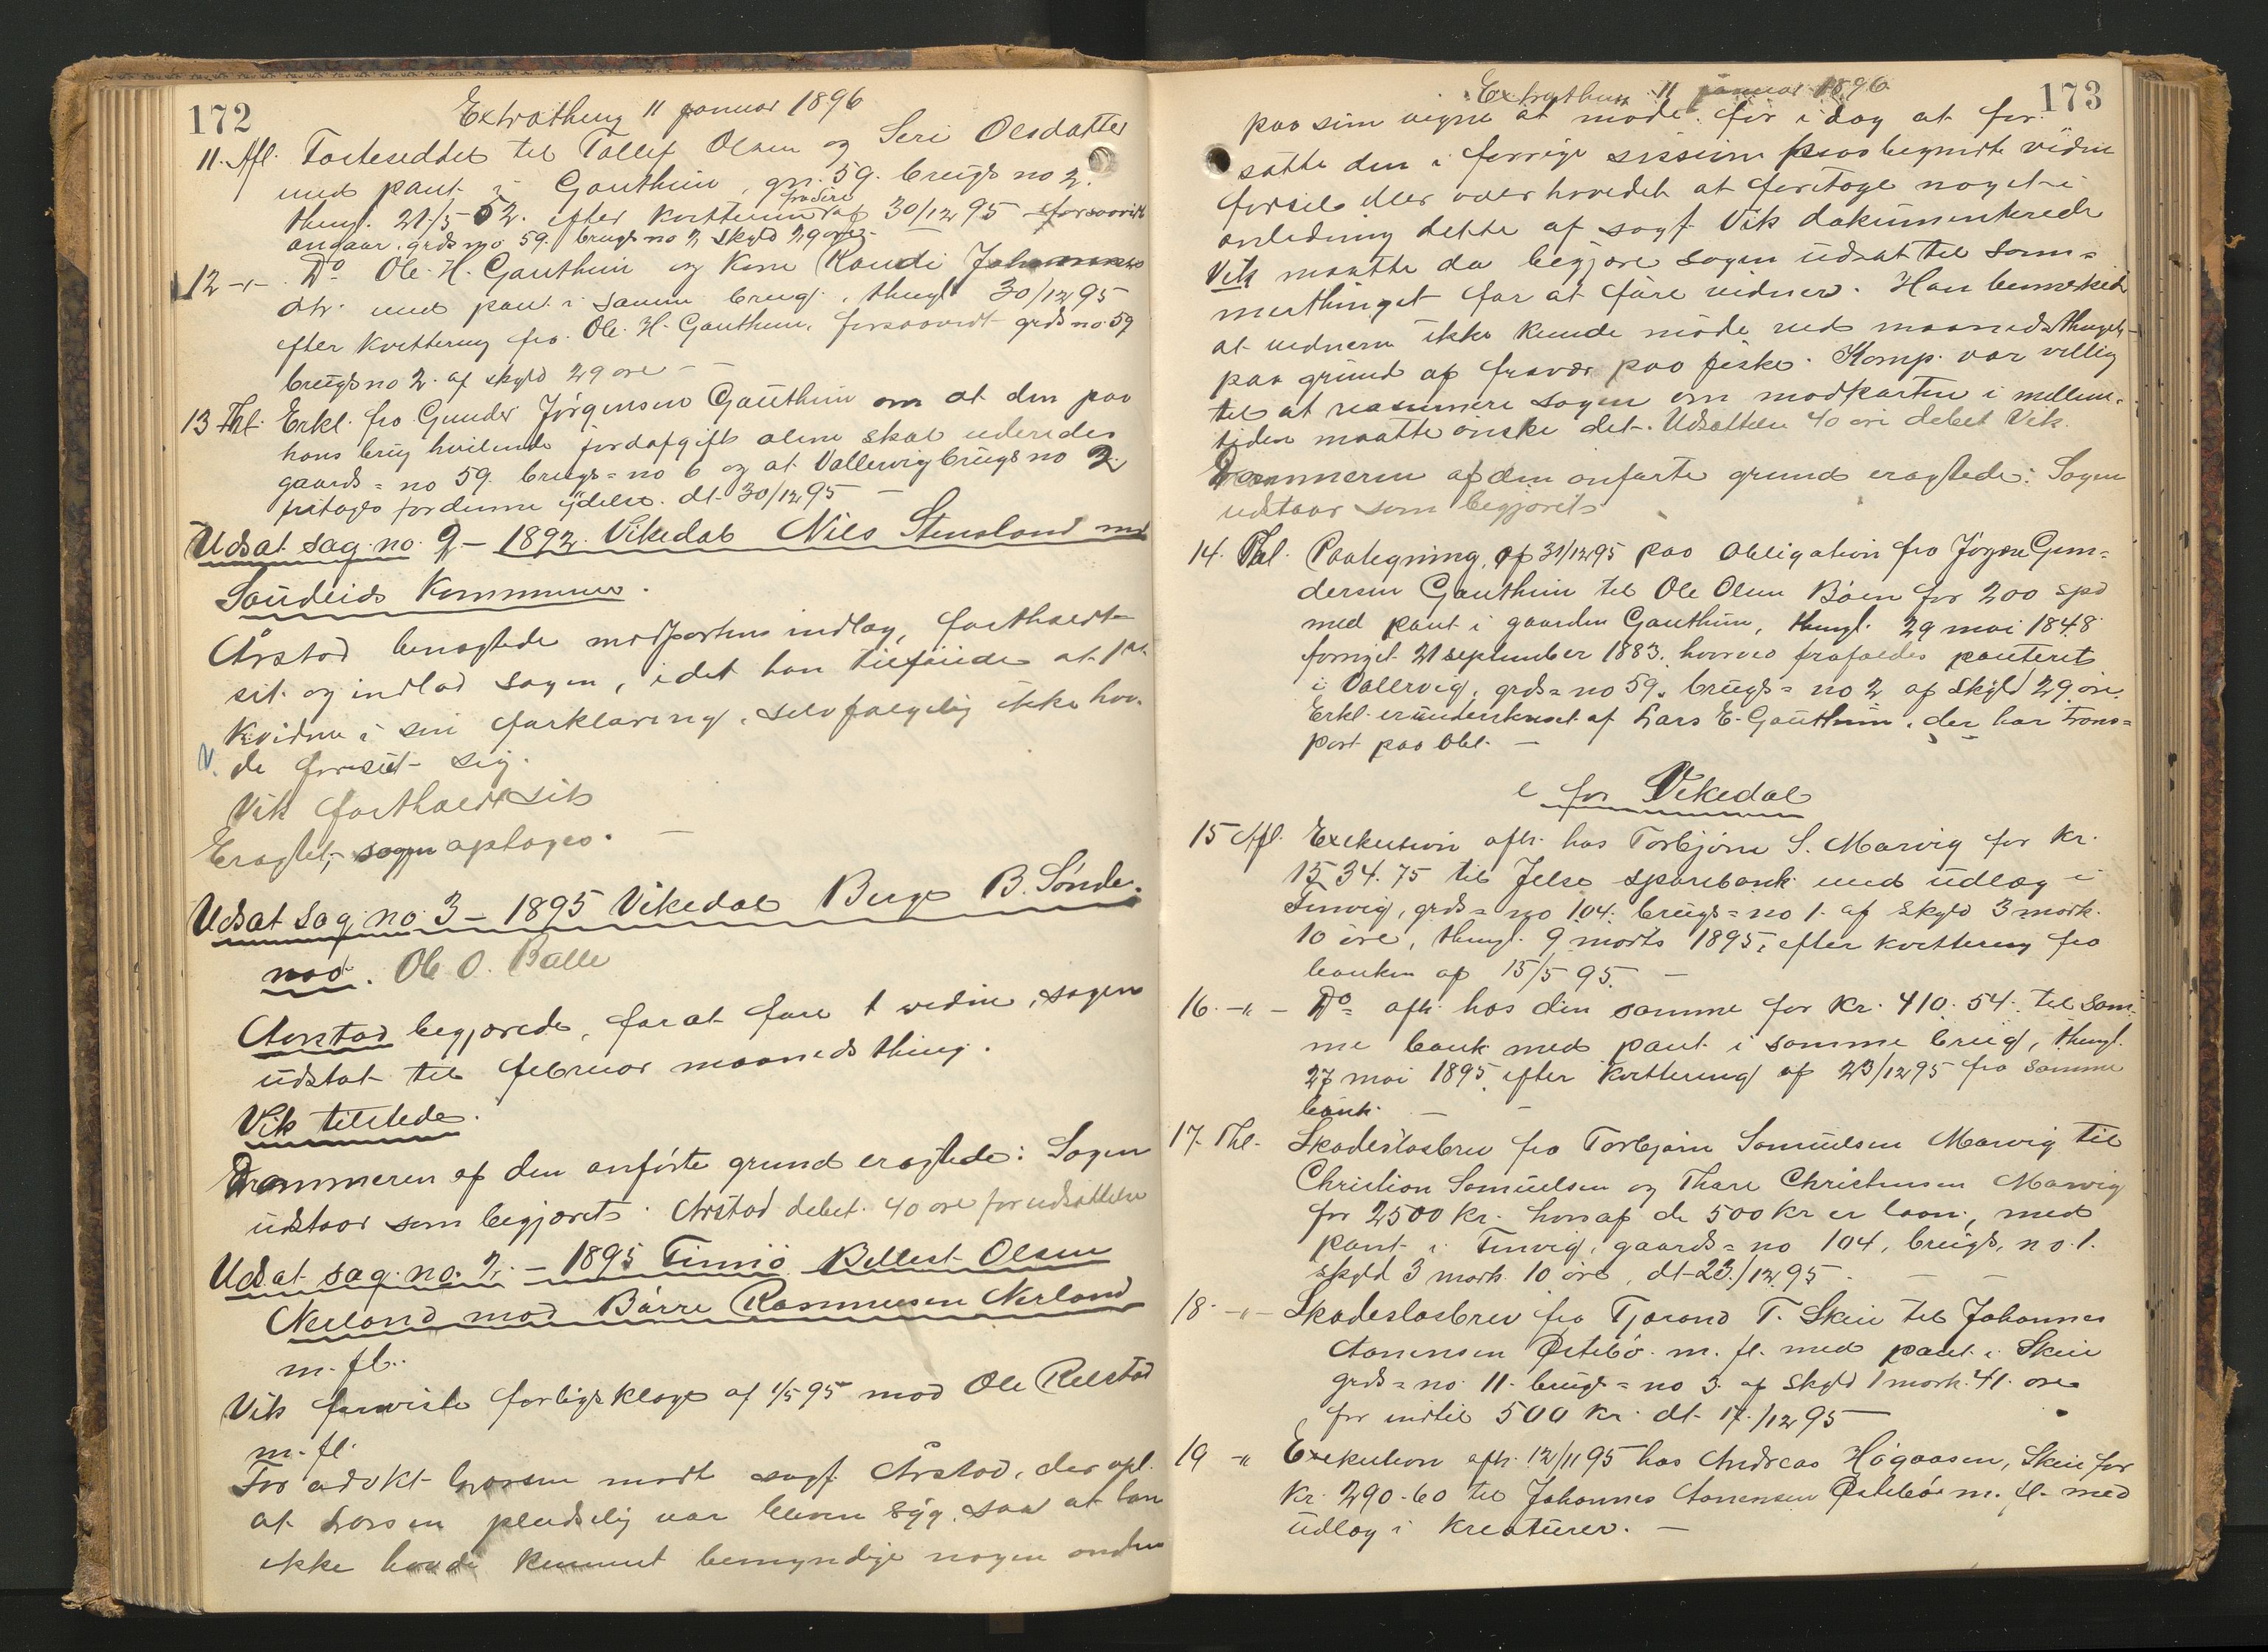 172
Extrathing 11 januar 1896
11. Afl. Festeseddel til Tollef Olsen og Seri Olsdatter
med pant i Gauthun, gn. 59. brugs no 2.
thingl. 21/5 52. efter kvittering fra dire af 30/12 95 forsaavidt
angaar grds no 59. brugs no 2 skyld 29 øre -
12 -"- Do Ole H. Gauthun og Kone Randi Johannes
dtr. med pant i samme brug, thingl. 30/12 95
efter kvittering fra Ole H. Gauthun, forsaavidt grds no 59
brugs no 2. af skyld 29 øre -
13 Thl. Erkl. fra Gunder Jørgensen Gauthun om at den paa
hans brug hvilende jordafgift alene skal uderedes
gaards = no 59. brugs = no 6 og at Vallervig brugs no 2
fritages for denne ydelse. dt. 30/12 95 -
Udsat sag no. 2 - 1892. Vikedal Nils Stensland mod
Sandeids Kommune.
Årstad benegtede modpartens indlæg, fastholdt
sit og indlod sagen, idet han tilføiede at 1ste
vidne i sin forklaring selvfølgelig ikke hav-
de forset sig.
Vik fastholdt sit
Eragtet; sagen optages. -
Udsat sag no 3 - 1895 Vikedal Birge B. Sønde-
nod. Ole O. Balle
Aarstad begjærede, for at føre 1 vidne, sagen
udsat til februar maanedsthing.
Vik tilstede.
Dommeren af den anførte grund eragtede: Sagen
udstaar som begjæret. Årstad debet. 40 øre for udsættelse
Udsat sag no. 2. - 1895 Finnö Bellest Olsen
Nerland mod Børre Rasmussen Nerland
m. fl.
Vik fremviste forligsklage af 1/5 95 mod Ole Relstad
m. fl.
For advkt. Larsen mødte sagf. Årstad, der opl.
at Larsen pludselig var bleven syg, saa at han
ikke havde kunnet bemyndige nogen anden
173
Extrathing 11 januar 1896
paa sine vegne at møde før i dag at fort
sætte den i forrige session paabegyndte vidne
førsel eller overhovedet at foretage noget i
anledning dette af sagf. Vik dokumenterede
Vik maatte da begjære sagen udsat til som=
merthinget for at føre vidner. Han bemerkede
at vidnerne ikke kunde møde ved maanedsthinget
paa grund af fravær paa fiske. Komp. var villig
til at reasumere sagen om modparten i mellem-
tiden maatte ønske det. Udsættelse 40 øre debet Vik.
Dommeren af den anførte grund eragtede: Sagen
udstaar som begjæret
14. Thl. Paategning af 31/12 95 paa obligation fra Jörgen Gun=
dersen Gauthun til Ole Olsen Böen for 200 spd
med pant i gaarden Gauthun, thingl. 29 mai 1848
fornyet 21 september 1883. hvorved frafaldes panteret
i Vallervig, grds = no 59, brugs = no 2 af skyld 29 øre.
Erkl. er underskrevet af Lars E. Gauthun, der har trans=
port paa obl. -
for Vikedal
15 Afl. Exekution afh. hos Torbjørn S. Marvig for kr.
1534.75 til Jelse sparebank med udlæg i
Tinvig, grds = no 104. brugs = no 1. af skyld 3 mark.
10 øre, thingl. 9 marts 1895, efter kvittering fra
banken af 15/5 95. -
16. -"- Do = afh. hos den samme for kr. 410.54. til sam-
me bank med pant i samme brug, thingl.
27 mai 1895 efter kvittering af 23/12 95 fra samme
bank. -
17. Thl. Skadesløsbrev fra Torbjørn Samuelsen Marvig til
Christian Samuelsen og Thore Christensen Marvig
for 2500 kr. hvoraf de 500 kr er laan, med
pant i Tinvig, gaards = no 104, brugs, no 1.
skyld 3 mark 10 øre, dt. 23./12 95.
18. -"- Skadesløsbrev fra Tjerand T. Skeie til Johannes
Aanensen Østebø m. fl. med pant i Skeie
grds = no 11. brugs = no 3. af skyld 1 mark 41. øre
for indtil 500 kr. dt. 17./12 95 -
19 -" Exekution afh. 12/11 95 hos Andreas Hógaasen, Skeie for
kr. 290.60 til Johannes Aanensen Østebø m. fl. med
udlæg i kreaturer. -